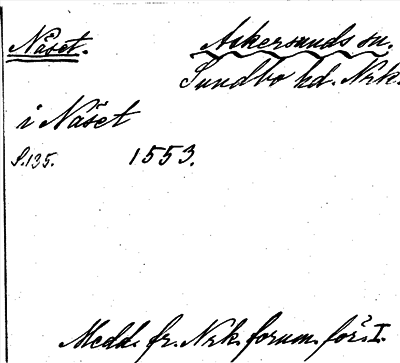 Näset. Askersunds sn.
Sundbo hd. Nrk.
i Näset
S. 135. 1553.
Medd. fr. Nrk. fornm. för. I.